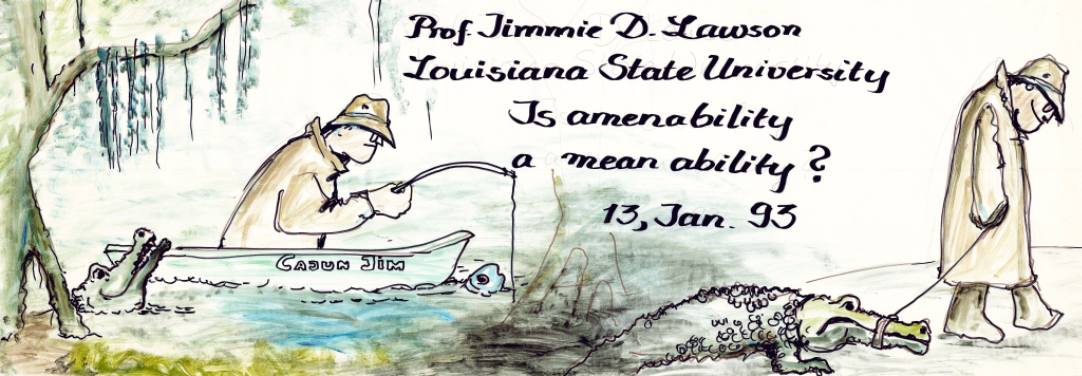 Prof. Jimmie D. Lawson
Louisiana State University
Is amenability
a mean ability?
13, Jan. 93
CAJUN JIM